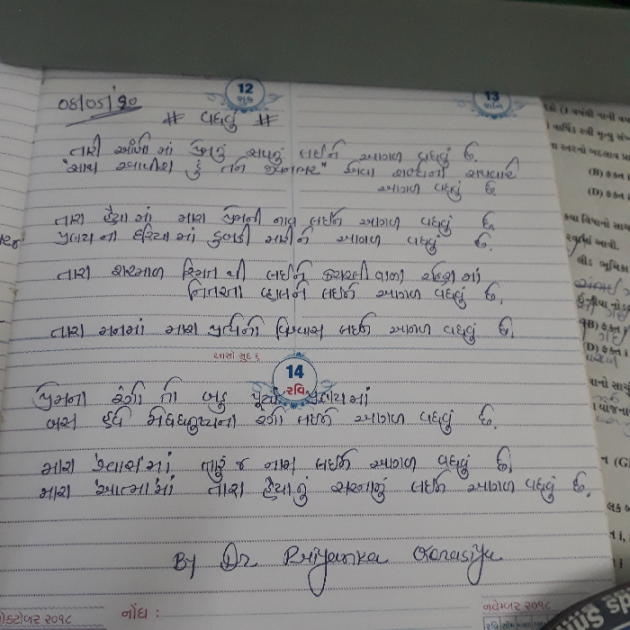 12
શુક્ર
13
શનિ
08/05/20
# વધવું #
તારી આંખો માં પ્રેમનું સપનું લઈને આગળ વધવું છે.
"સાથ આપીશ હું તને જીવનભર" એવા શબ્દોના સથવારે
આગળ વધવું છે
તારા હૈયા માં મારા પ્રેમની નાવ લઈને આગળ વધવું છે.
પ્રણયના દરિયા માં ડુબકી મારીને આગળ વધવું છે.
તારા શરમાળ સ્મિત થી લઈને કરચલી વાળા ચહેરા માં
નિતરતા વ્હાલને લઈને આગળ વધવું છે.
તારા મનમાં મારા પ્રત્યેનો વિશ્વાસ લઈને આગળ વધવું છે.
આસો સુદ ૬
14
રવિ
પ્રેમના રંગો તો બહુ પૂર્યા હૃદય માં
બસ હવે મેઘધનુષ્યના રંગો લઈને આગળ વધવું છે.
મારા 'શ્વાસ'માં તારું જ નામ લઈને આગળ વધવું છે.
મારા 'આત્મા'માં તારા હૈયાનું સરનામું લઈને આગળ વધવું છે.
By Dr Priyanka
ઓક્ટોબર ૨૦૧૮
નોંધ :
નવેમ્બર ૨૦૧૮